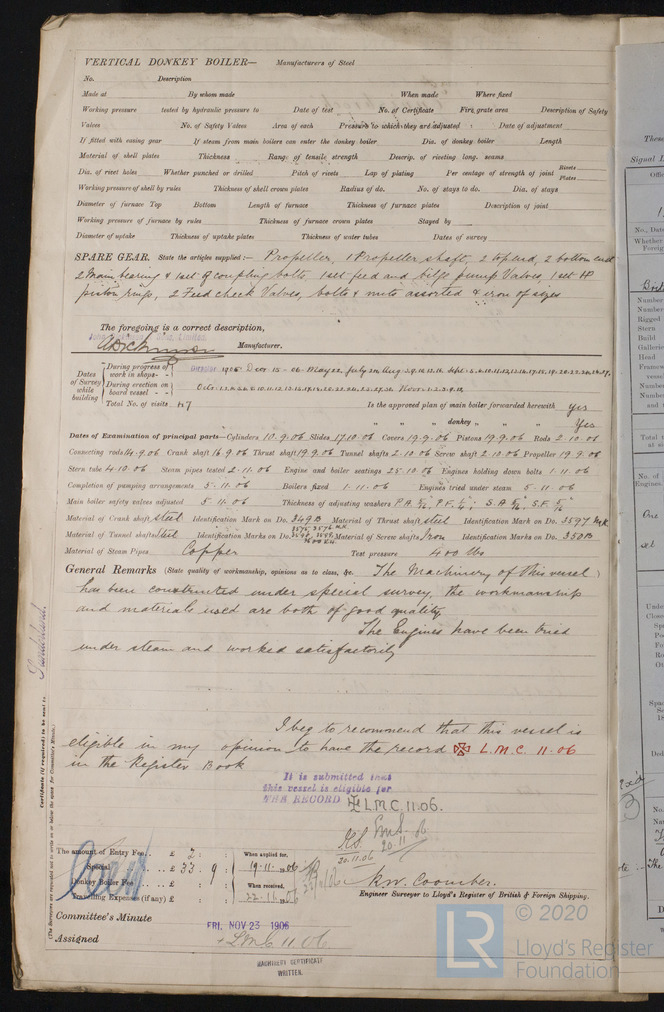 VERTICAL DONKEY BOILER— Manufacturers of Steel
No. Description
Made at By whom made When made Where fixed
Working pressure tested by hydraulic pressure to Date of test No. of Certificate Fire grate area Description of Safety
Valves No. of Safety Valves Area of each Pressure to which they are adjusted Date of adjustment
If fitted with easing gear If steam from main boilers can enter the donkey boiler Dia. of donkey boiler Length
Material of shell plates Thickness Range of tensile strength Descrip. of riveting long. seams
Dia. of rivet holes Whether punched or drilled Pitch of rivets Lap of plating Per centage of strength of joint Rivets Plates
Working pressure of shell by rules Thickness of shell crown plates Radius of do. No. of stays to do. Dia. of stays
Diameter of furnace Top Bottom Length of furnace Thickness of furnace plates Description of joint
Working pressure of furnace by rules Thickness of furnace crown plates Stayed by
Diameter of uptake Thickness of uptake plates Thickness of water tubes Dates of survey
SPARE GEAR. State the articles supplied:— Propeller, 1 Propeller shaft, 2 top end, 2 bottom end
2 Main bearing & 1 set of coupling bolts. 1 set feed and bilge pump Valves, 1 set HP
piston rings, 2 Feed check Valves, bolts & nuts assorted & iron of sizes
The foregoing is a correct description,
Manufacturer.
Dates of Survey while building
During progress of work in shops - -
During erection on board vessel - - -
Total No. of visits 47 Is the approved plan of main boiler forwarded herewith yes
" " " donkey " " " Yes
Dates of Examination of principal parts—Cylinders 10.9.06 Slides 17.10.06 Covers 19.9.06 Pistons 19.9.06 Rods 2.10.06
Connecting rods 14.9.06 Crank shaft 16.9.06 Thrust shaft 19.9.06 Tunnel shafts 2.10.06 Screw shaft 2.10.06 Propeller 19.9.06
Stern tube 4.10.06 Steam pipes tested 2.11.06 Engine and boiler seatings 25.10.06 Engines holding down bolts 1.11.06
Completion of pumping arrangements 5.11.06 Boilers fixed 1.11.06 Engines tried under steam 5.11.06
Main boiler safety valves adjusted 5.11.06 Thickness of adjusting washers
Material of Crank shaft steel Identification Mark on Do. 349B Material of Thrust shaft steel Identification Mark on Do. 3597 M.K.
Material of Tunnel shafts steel Identification Marks on Do. Material of Screw shafts Iron Identification Marks on Do. 350B
Material of Steam Pipes Copper Test pressure 400 lbs
General Remarks (State quality of workmanship, opinions as to class, &c. The Machinery of this vessel
has been constructed under special survey, the workmanship
and materials used are both of good quality
The Engines have been tried
under steam and worked satisfactorily
I beg to recommend that this vessel is
eligible in my opinion to have the record L.M.C. 11.06
in the Register Book
It is submitted that
this vessel is eligible for
THE RECORD L.M.C. 11.06.
20.11.06
The amount of Entry Fee. . £ 2 : : When applied for,
Special . . . . £ 33 . 9 : 19.11.1906
Donkey Boiler Fee . . . £ : : When received,
Travelling Expenses (if any) £ : : 22.11.1906
K.W. Coomber.
Engineer Surveyor to Lloyd's Register of British & Foreign Shipping.
Committee's Minute FRI. NOV 23 1906
Assigned + LMC 11.06
MACHINERY CERTIFICATE
WRITTEN.
Sunderland.
Certificate (if required) to be sent to
(The Surveyors are requested not to write on or below the space for Committee's Minute.)
© 2020
Lloyd's Register
Foundation
LR